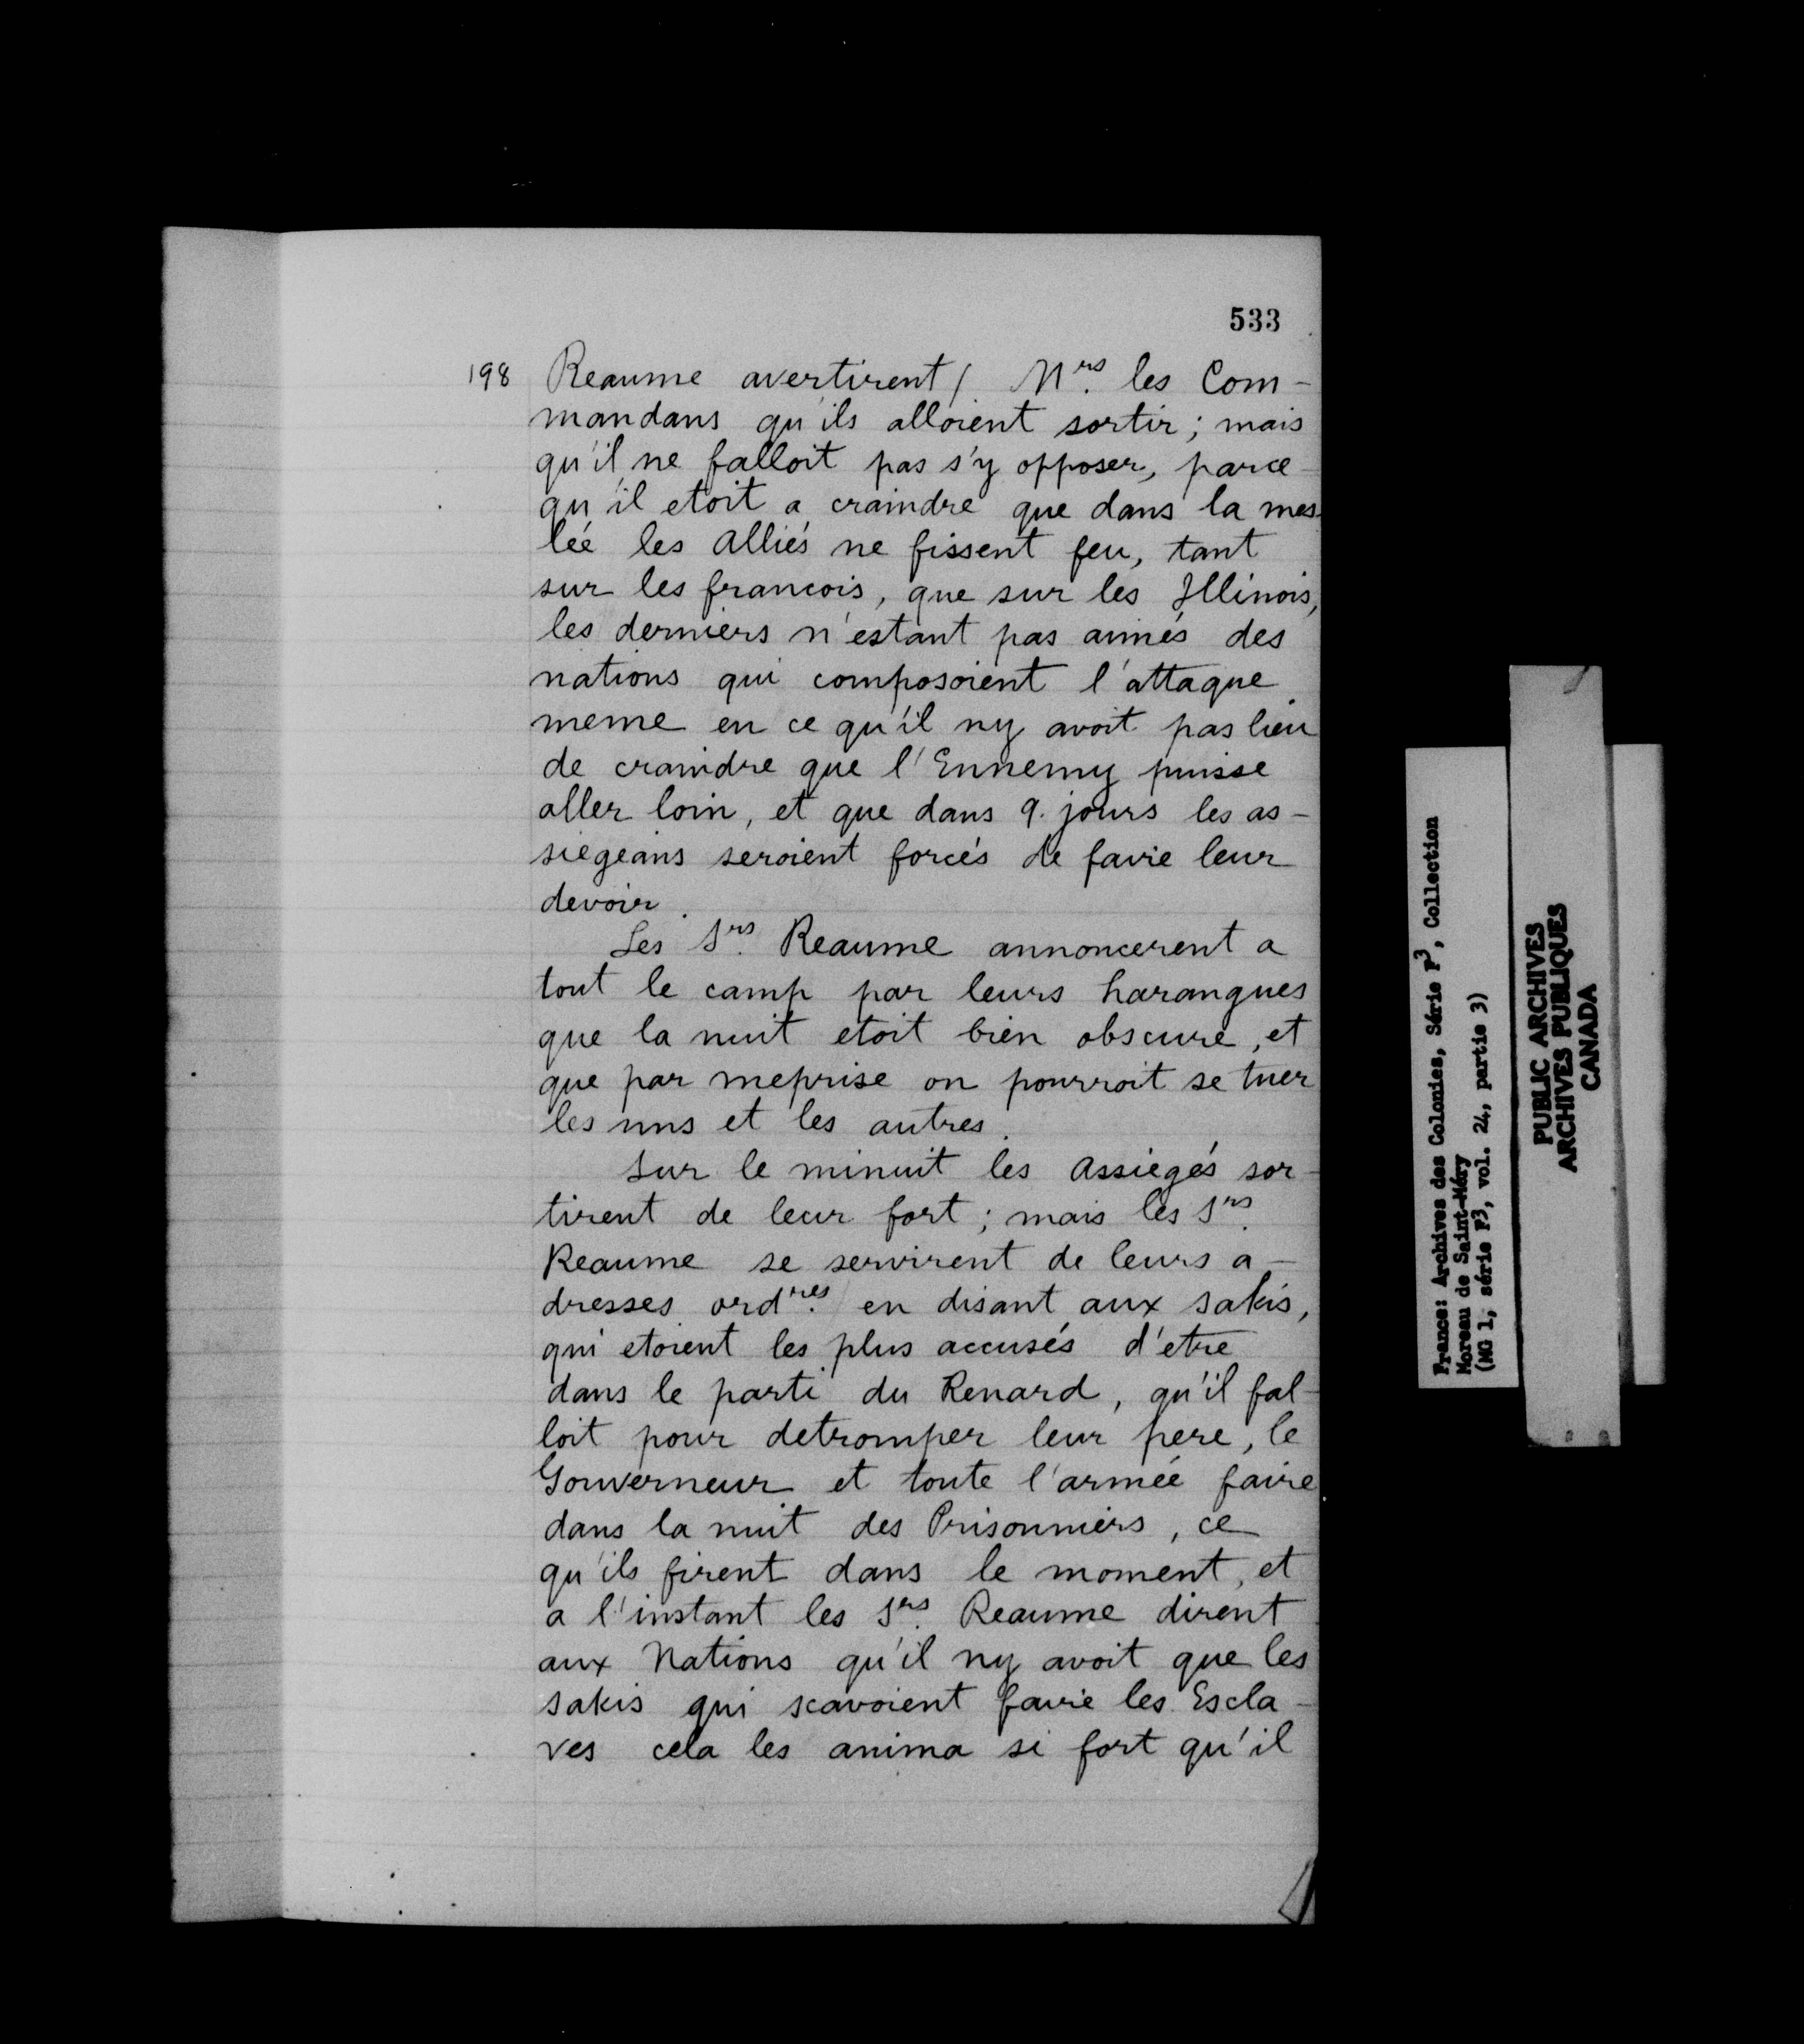 533
198 Reaume avertirent / Mrs. les Com-
mandans qu'ils alloient sortir; mais
qu'il ne falloit pas s'y opposer, parce
qu'il etoit a craindre que dans la mes-
lée les alliés ne fissent feu, tant
sur les francois, que sur les Illinois,
les derniers n'estant pas aimés des
nations qui composoient l'attaque
meme en ce qu'il ny avoit pas lieu
de craindre que l'Ennemy puisse
aller loin, et que dans 9. jours les as-
siegeans seroient forcés de faire leur
devoir.
Les Srs. Reaume annoncerent a
tout le camp par leurs harangues
que la nuit etoit bien obscure, et
que par meprise on pourroit se tuer
les uns et les autres.
Sur le minuit les assiegés sor-
tirent de leur fort; mais les Srs.
Reaume se servirent de leurs a-
dresses ordres. en disant aux sakis,
qui etoient les plus accusés d'etre
dans le parti du Renard, qu'il fal-
loit pour detromper leur pere, le
Gouverneur et toute l'armée faire
dans la nuit des Prisonniers, ce
qu'ils firent dans le moment, et
a l'instant les Srs. Reaume dirent
aux Nations qu'il ny avoit que les
sakis qui scavoient faire les Escla-
ves cela les anima si fort qu'il
France: Archives des Colonies, Série F3, Collection
Moreau de Saint-Méry
(MG 1, série F3, vol. 24, partie 3)
PUBLIC ARCHIVES
ARCHIVES PUBLIQUES
CANADA